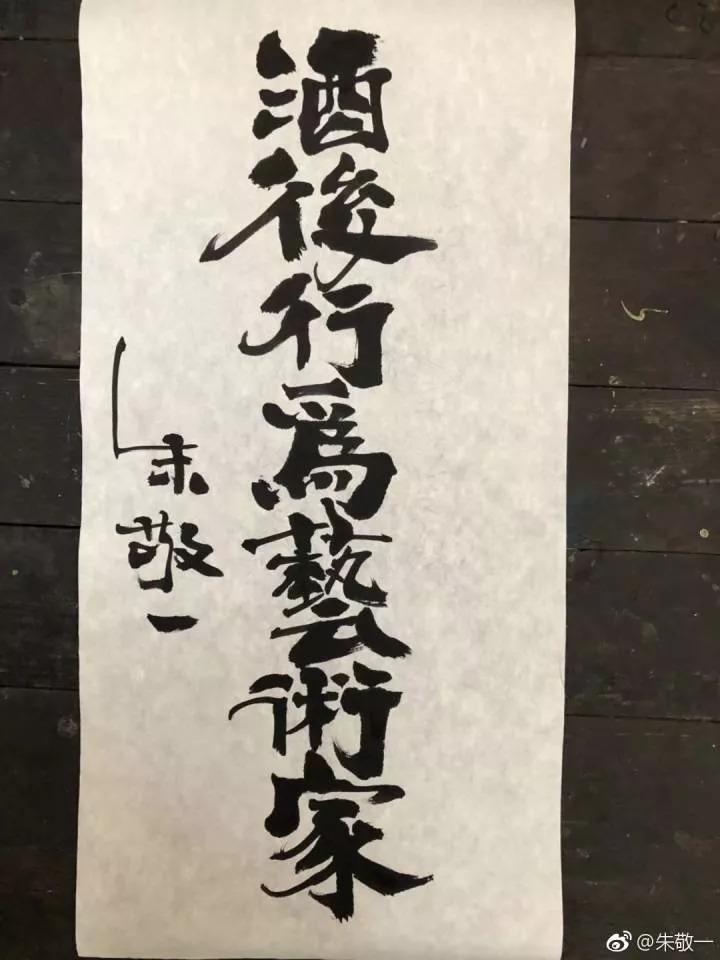 酒後行爲藝術家
朱敬一
@朱敬一